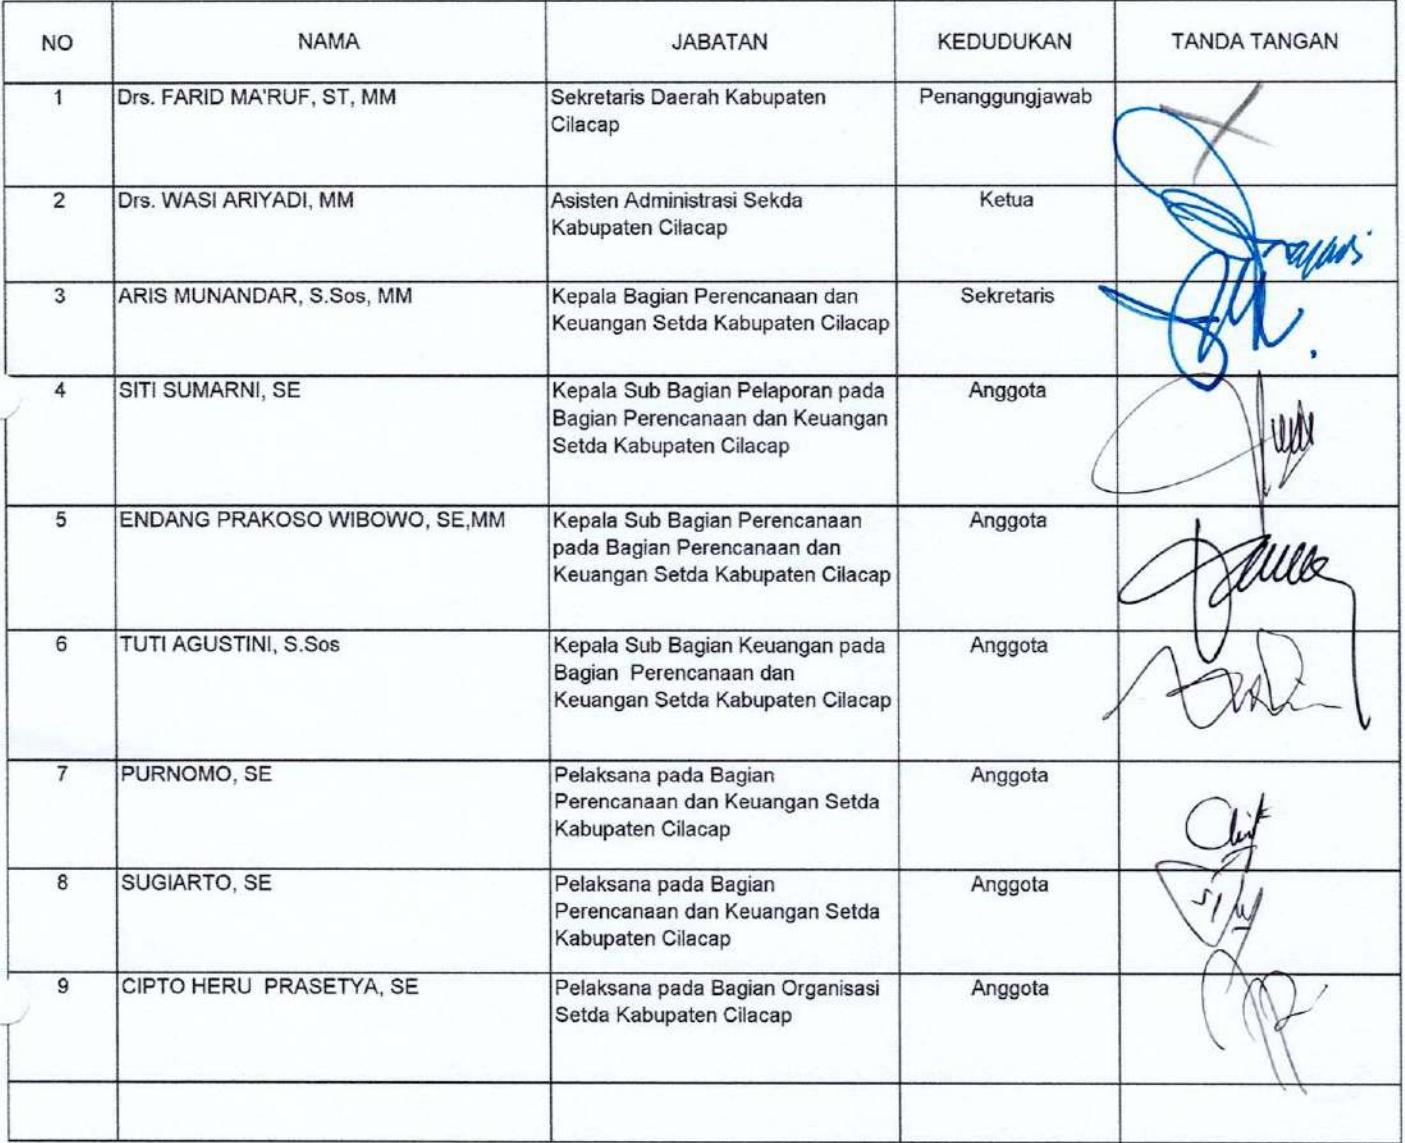 NO NAMA JABATAN KEDUDUKAN TANDA TANGAN
1 Drs. FARID MA'RUF, ST, MM Sekretaris Daerah Kabupaten Penanggungjawab
Cilacap
2 Drs. WASI ARIYADI, MM Asisten Administrasi Sekda Ketua
Kabupaten Cilacap
3 ARIS MUNANDAR, S.Sos, MM Kepala Bagian Perencanaan dan Sekretaris
Keuangan Setda Kabupaten Cilacap
4 SITI SUMARNI, SE Kepala Sub Bagian Pelaporan pada Anggota
Bagian Perencanaan dan Keuangan
Setda Kabupaten Cilacap
5 ENDANG PRAKOSO WIBOWO, SE,MM Kepala Sub Bagian Perencanaan Anggota
pada Bagian Perencanaan dan
Keuangan Setda Kabupaten Cilacap
6 TUTI AGUSTINI, S.Sos Kepala Sub Bagian Keuangan pada Anggota
Bagian Perencanaan dan
Keuangan Setda Kabupaten Cilacap
7 PURNOMO, SE Pelaksana pada Bagian Anggota
Perencanaan dan Keuangan Setda
Kabupaten Cilacap
8 SUGIARTO, SE Pelaksana pada Bagian Anggota
Perencanaan dan Keuangan Setda
Kabupaten Cilacap
9 CIPTO HERU PRASETYA, SE Pelaksana pada Bagian Organisasi Anggota
Setda Kabupaten Cilacap